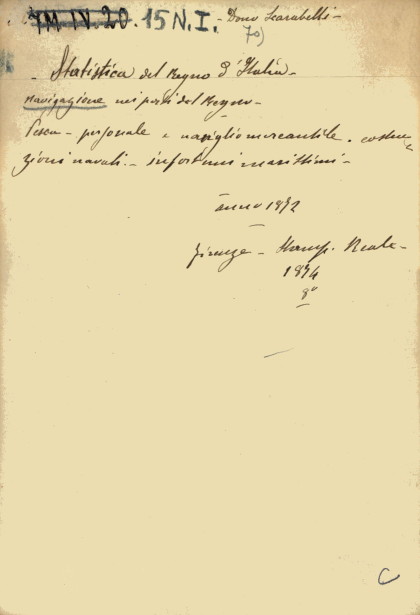 7M IV. 20. 15 N. I. - Dono Scarabelli -
70)
- Statistica del Regno d'Italia -
Navigazione nei porti del Regno -
Pesca - personale e naviglio mercantile. costru
zioni navali. - infortuni marittimi -
anno 1872
Firenze - Stamp. Reale -
1874
8°
C